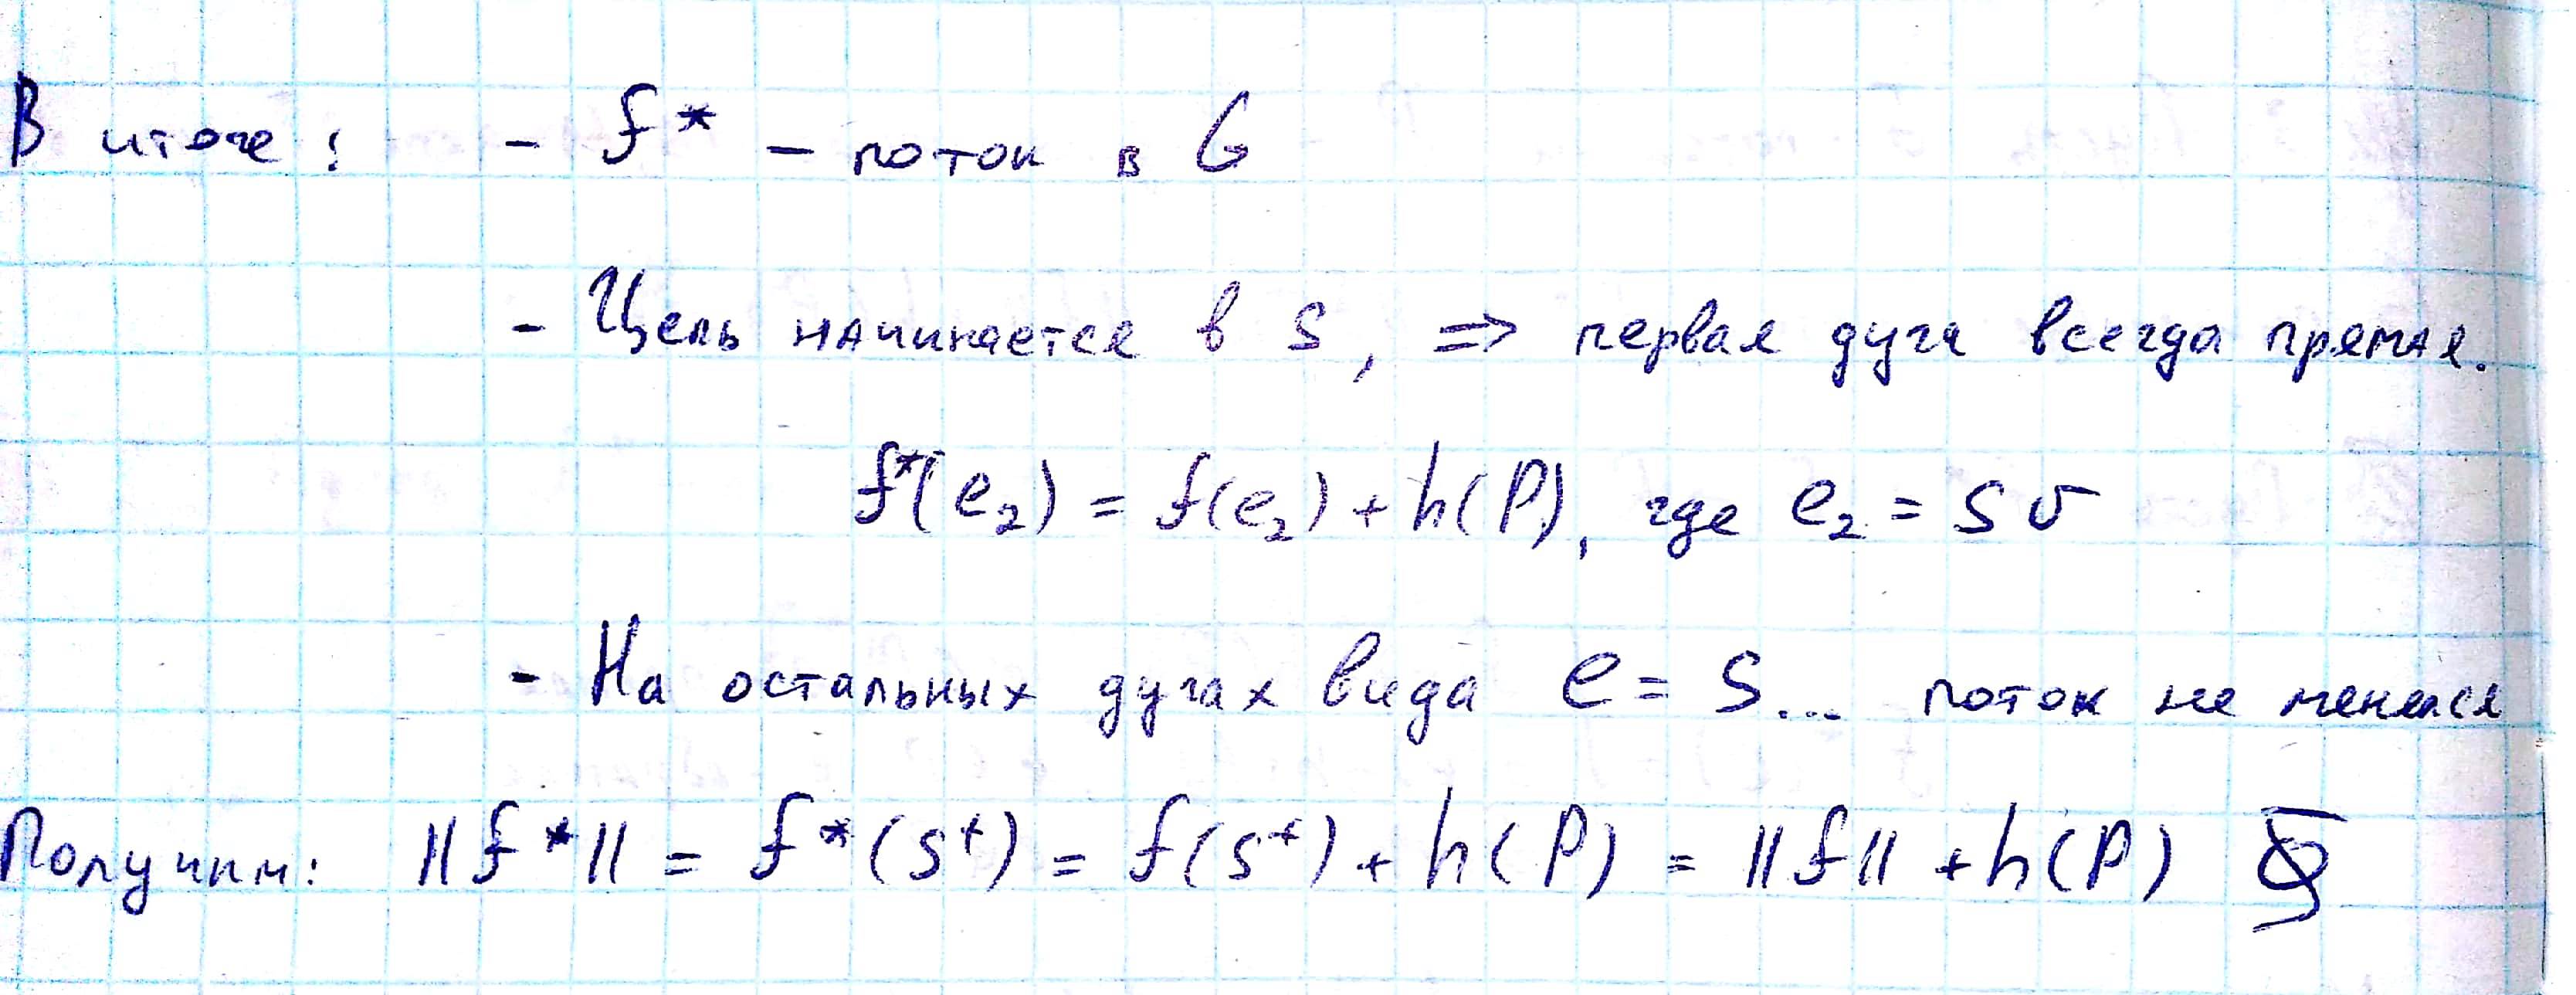 В итоге: - f* - поток в G
- Цепь начинается в s, => первая дуга всегда прямая.
f*(e₂) = f(e₂) + h(P), где e₂ = sv
- На остальных дугах вида e = s... поток не менялся
Получим: ||f*|| = f*(s⁺) = f(s⁺) + h(P) = ||f|| + h(P)